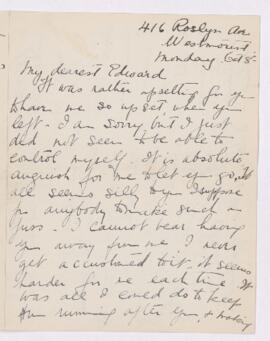 416 Roslyn Av.
Westmount
Monday Oct 8.
My dearest Edward
It was rather upsetting for you
to have me so up set when you
left - I am sorry but I just
did not seem to be able to
control myself. It is absolute
anguish for me to let you go, it
all seems silly to you I suppose
for anybody to make such a
fuss. I cannot bear having
you away from me, I never
get accustomed to it, it seems
harder for me each time. It
was all I could do to keep
from running after you, &